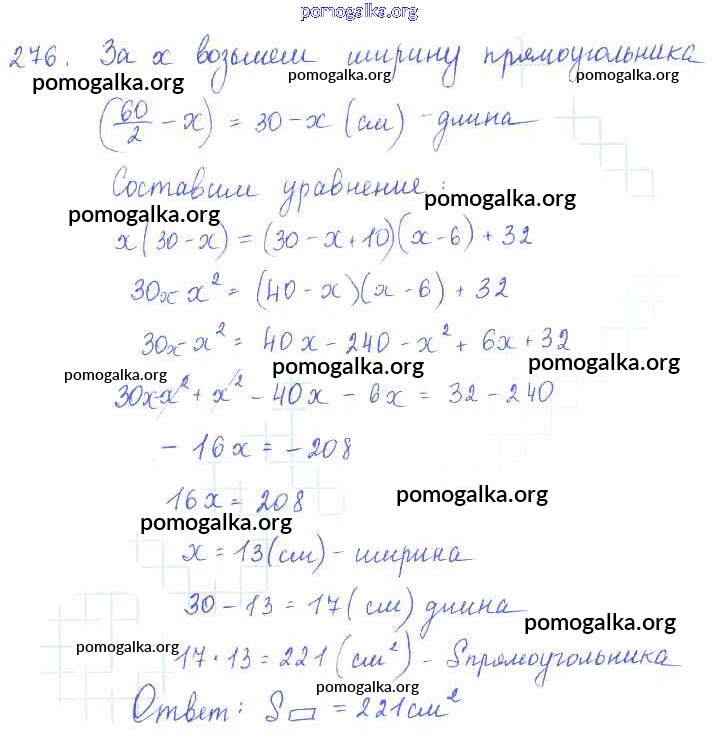 pomogalka.org
276. За x возьмем ширину прямоугольника
pomogalka.org pomogalka.org pomogalka.org
(60/2 - x) = 30 - x (см) - длина
Составим уравнение:
pomogalka.org pomogalka.org
x(30 - x) = (30 - x + 10)(x - 6) + 32
30x - x² = (40 - x)(x - 6) + 32
30x - x² = 40x - 240 - x² + 6x + 32
pomogalka.org pomogalka.org pomogalka.org
30x - x² + x² - 40x - 6x = 32 - 240
- 16x = - 208
16x = 208
pomogalka.org
pomogalka.org
x = 13 (см) - ширина
30 - 13 = 17 (см) длина
pomogalka.org
pomogalka.org
17 · 13 = 221 (см²) - S прямоугольника
pomogalka.org
Ответ: S▭ = 221 см²